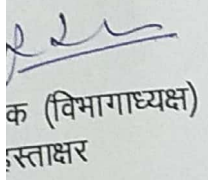 क (विभागाध्यक्ष)
हस्ताक्षर